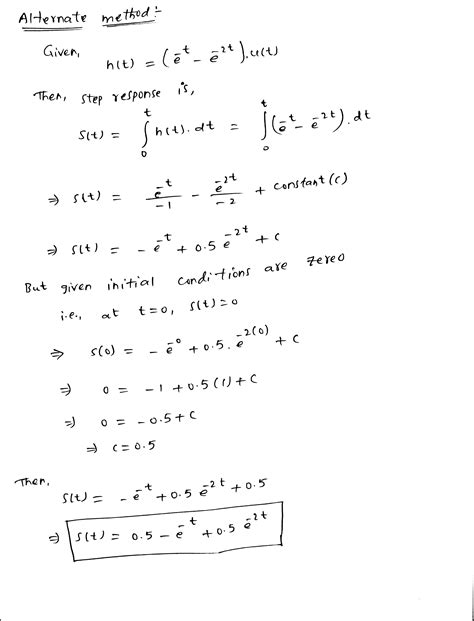 Alternate method :-
Given, h(t) = (e^-t - e^-2t).u(t)
Then, step response is,
s(t) = ∫_0^t h(t).dt = ∫_0^t (e^-t - e^-2t).dt
⇒ s(t) = e^-t/-1 - e^-2t/-2 + constant(c)
⇒ s(t) = -e^-t + 0.5 e^-2t + c
But given initial conditions are zereo
i.e., at t=0, s(t)=0
⇒ s(0) = -e^-0 + 0.5. e^-2(0) + c
⇒ 0 = -1 + 0.5(1) + c
⇒ 0 = -0.5 + c
⇒ c = 0.5
Then,
s(t) = -e^-t + 0.5 e^-2t + 0.5
⇒ s(t) = 0.5 - e^-t + 0.5 e^-2t